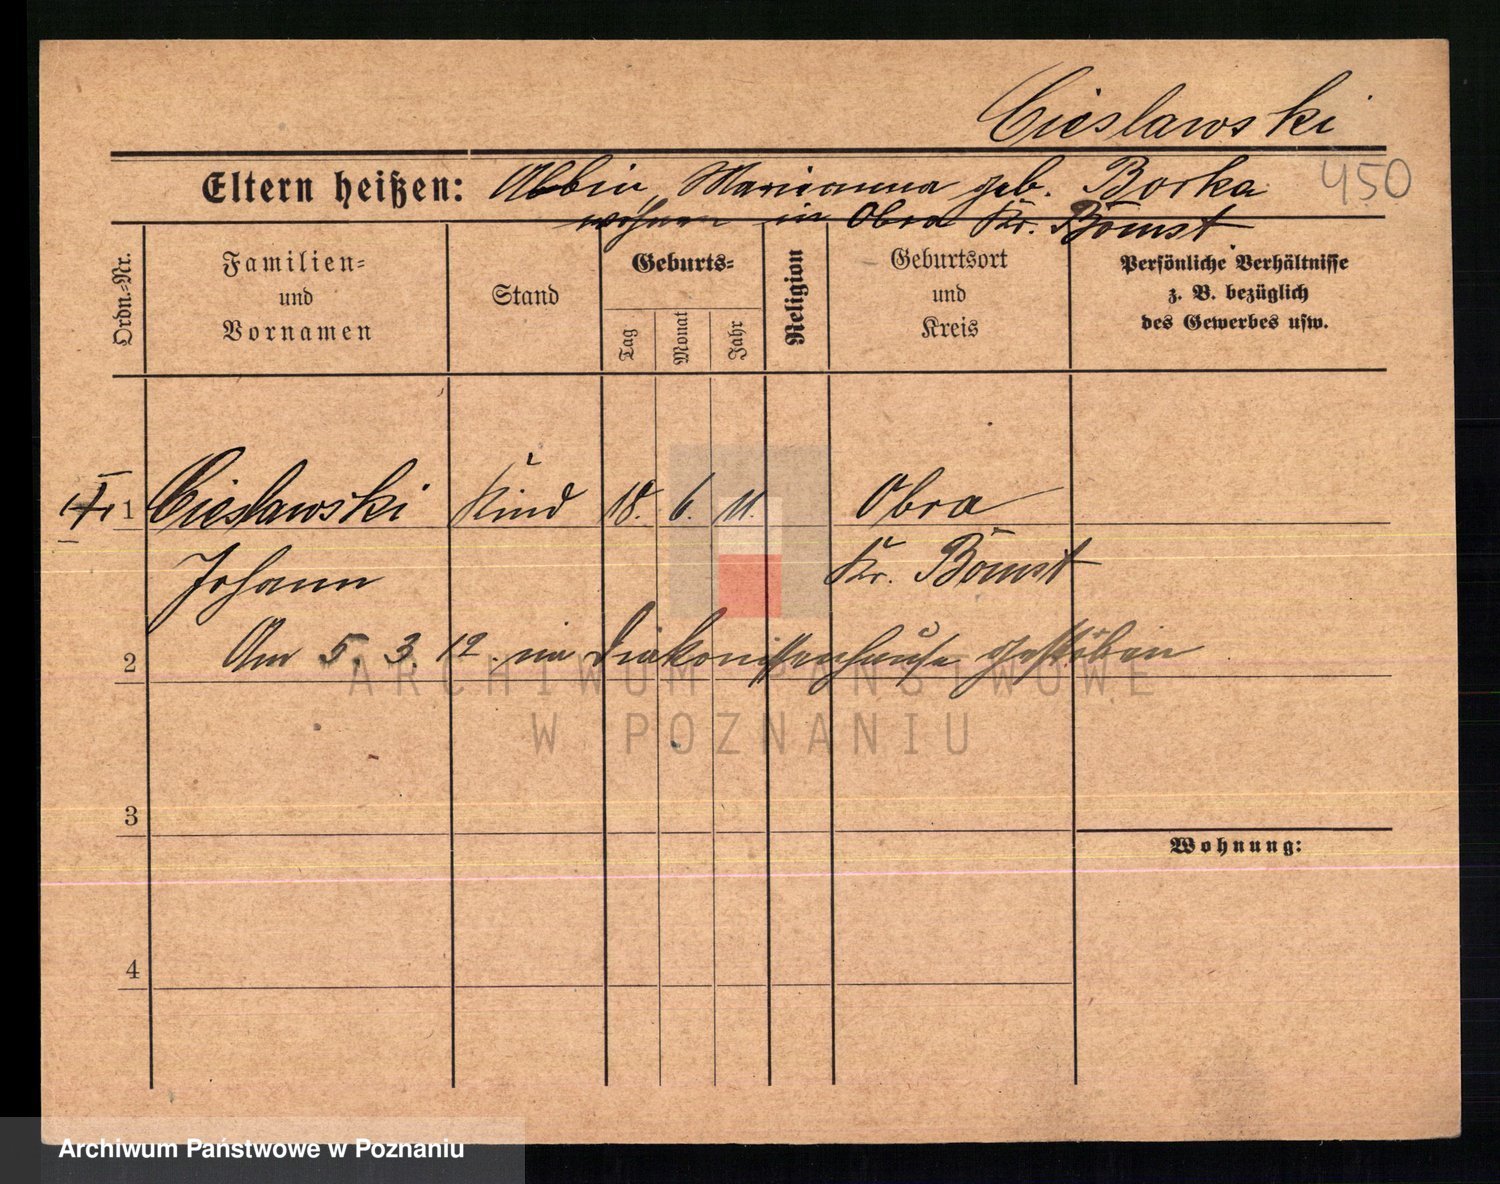 Cieslawski
450
Eltern heißen: Albin, Marianna geb. Borka
wohnen in Obra Kr. Bomst
Ordn.-Nr.
Familien- und Vornamen
Stand
Geburts-
Tag
Monat
Jahr
Religion
Geburtsort und Kreis
Persönliche Verhältnisse
z. B. bezüglich
des Gewerbes usw.
1 Cieslawski Kind 18. 6. 11. Obra
Johann Kr. Bomst
2 Am 5. 3. 12. im Diakonissenhause gestorben
ARCHIWUM PAŃSTWOWE
W POZNANIU
3
Wohnung:
4
Archiwum Państwowe w Poznaniu